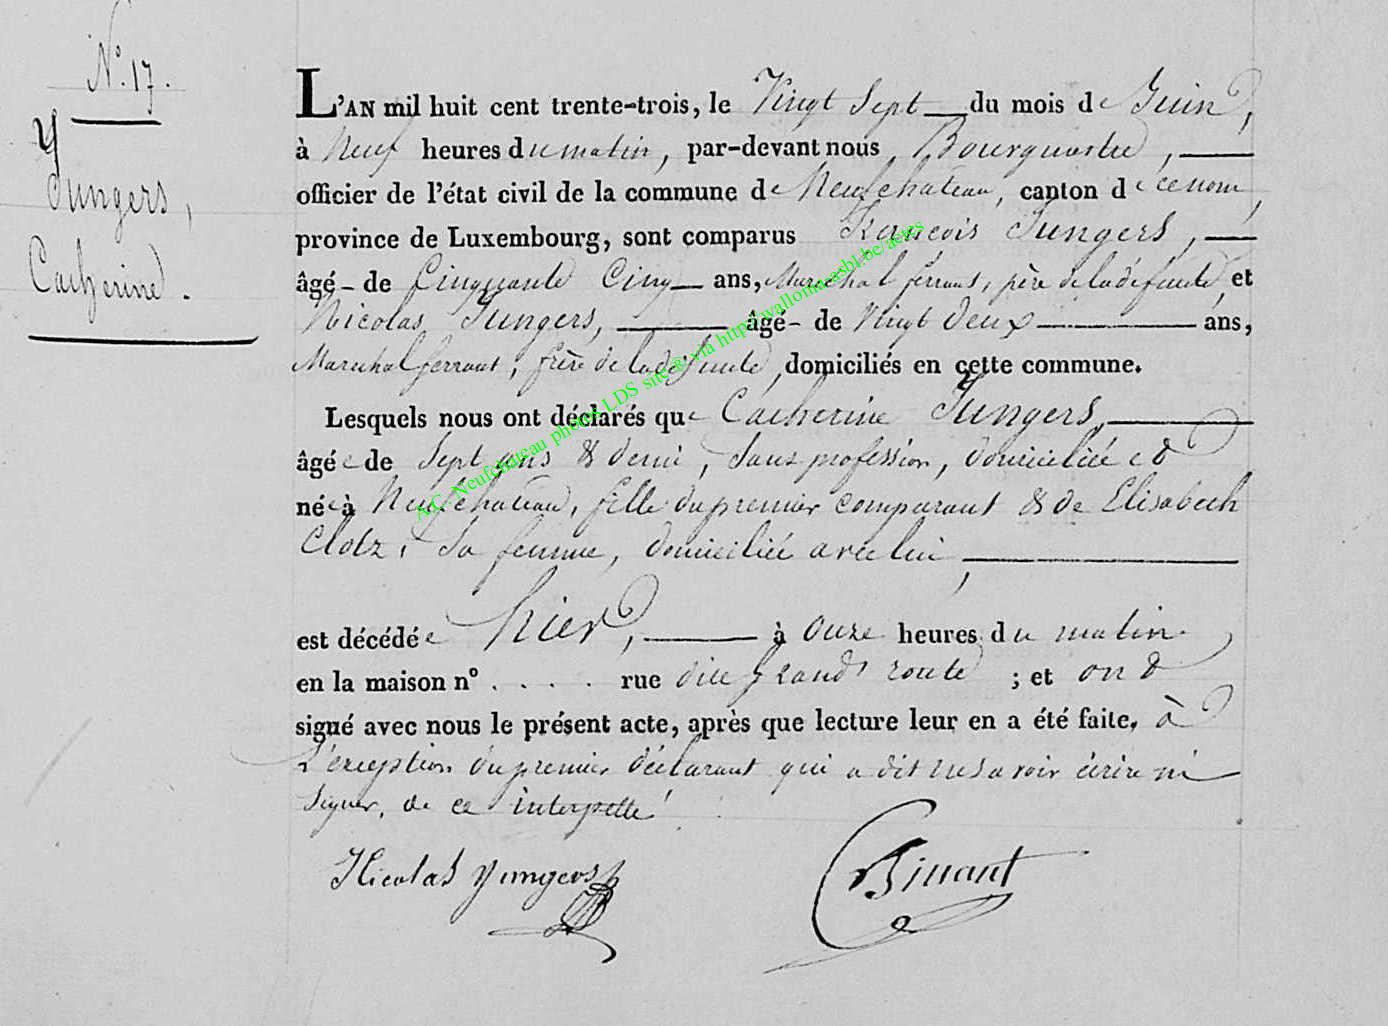 N.° 17.
Jungers,
Catherine.
L'AN mil huit cent trente-trois, le Vingt Sept du mois de Juin,
à Neuf heures du matin, par-devant nous Bourguestre,
officier de l'état civil de la commune de Neufchateau, canton de ce nom,
province de Luxembourg, sont comparus François Jungers,
âgé - de Cinquante Cinq ans, Marechal ferrant, père de la défunte et
Nicolas Jungers, âgé - de Vingt Deux ans,
Marechal ferrant, frère de la défunte, domiciliés en cette commune.
Lesquels nous ont déclarés que Catherine Jungers,
âgée de Sept ans & demi, Sans profession, domiciliée et
née à Neufchateau, fille du premier comparant & de Elisabeth
Clotz, Sa femme, domiciliée avec lui,
est décédée hier, à onze heures du matin
en la maison n° . . . . rue dite grand route ; et ont
signé avec nous le présent acte, après que lecture leur en a été faite. à
L'exception du premier déclarant qui a dit ne savoir écrire ni
Signer, de ce interpellé.
Nicolas Jungers
Binant
AC Neufchateau photos LDS site via http://wallonica.asbl.be/actes